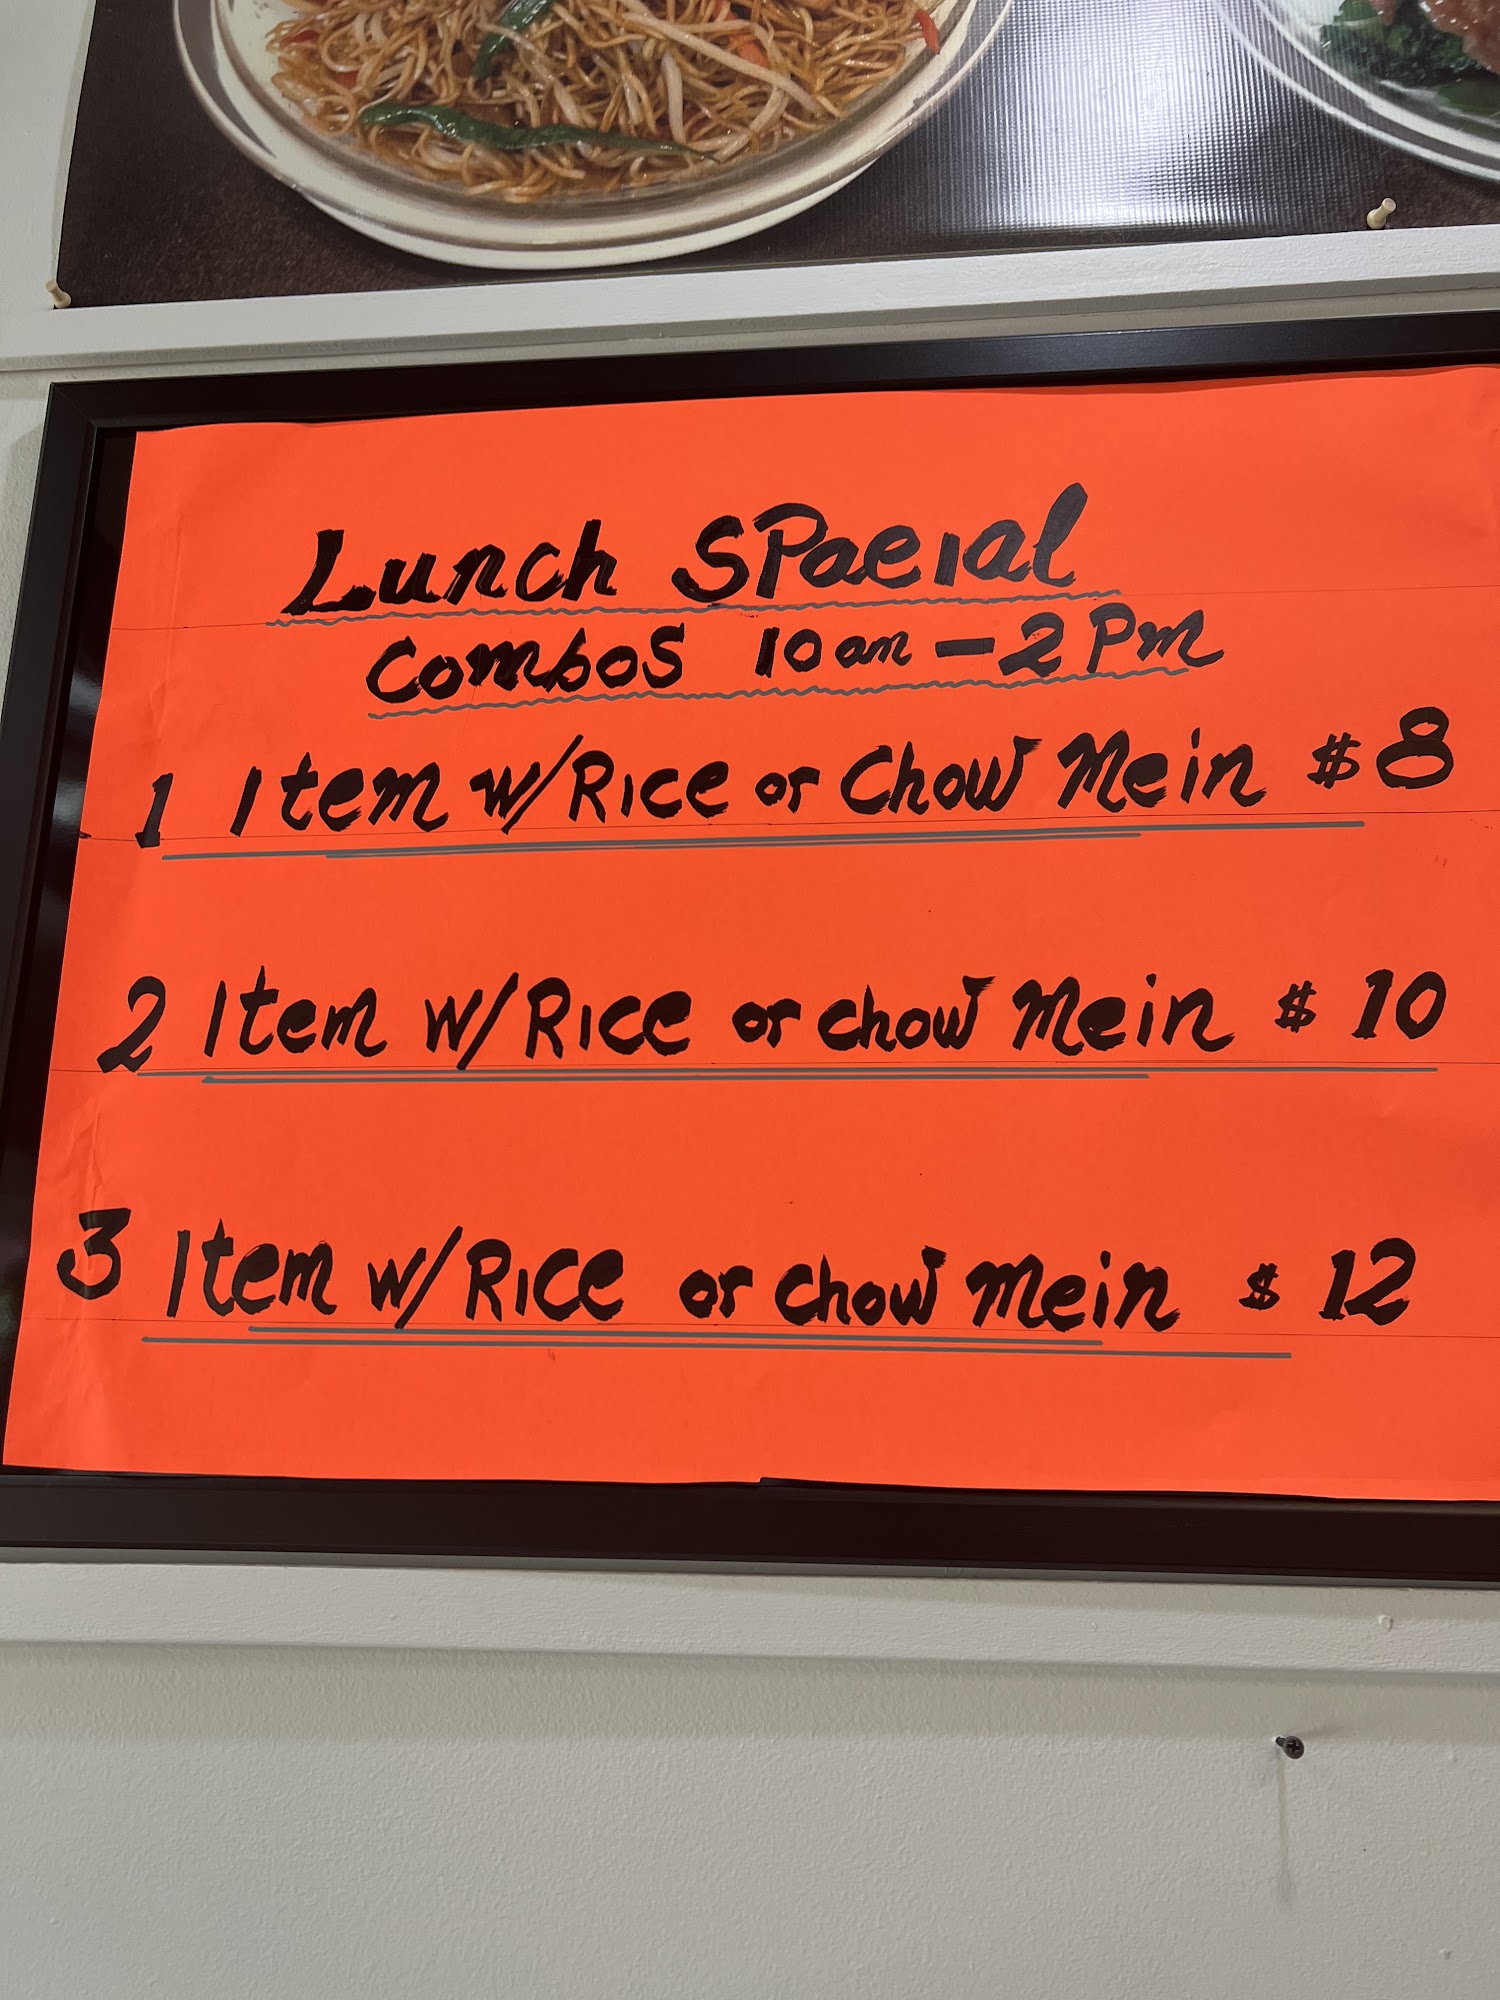 Lunch SPaeial
Combos 10am - 2Pm
1 Item w/Rice or Chow Mein $8
2 Item w/Rice or chow Mein $10
3 Item w/Rice or chow mein $12